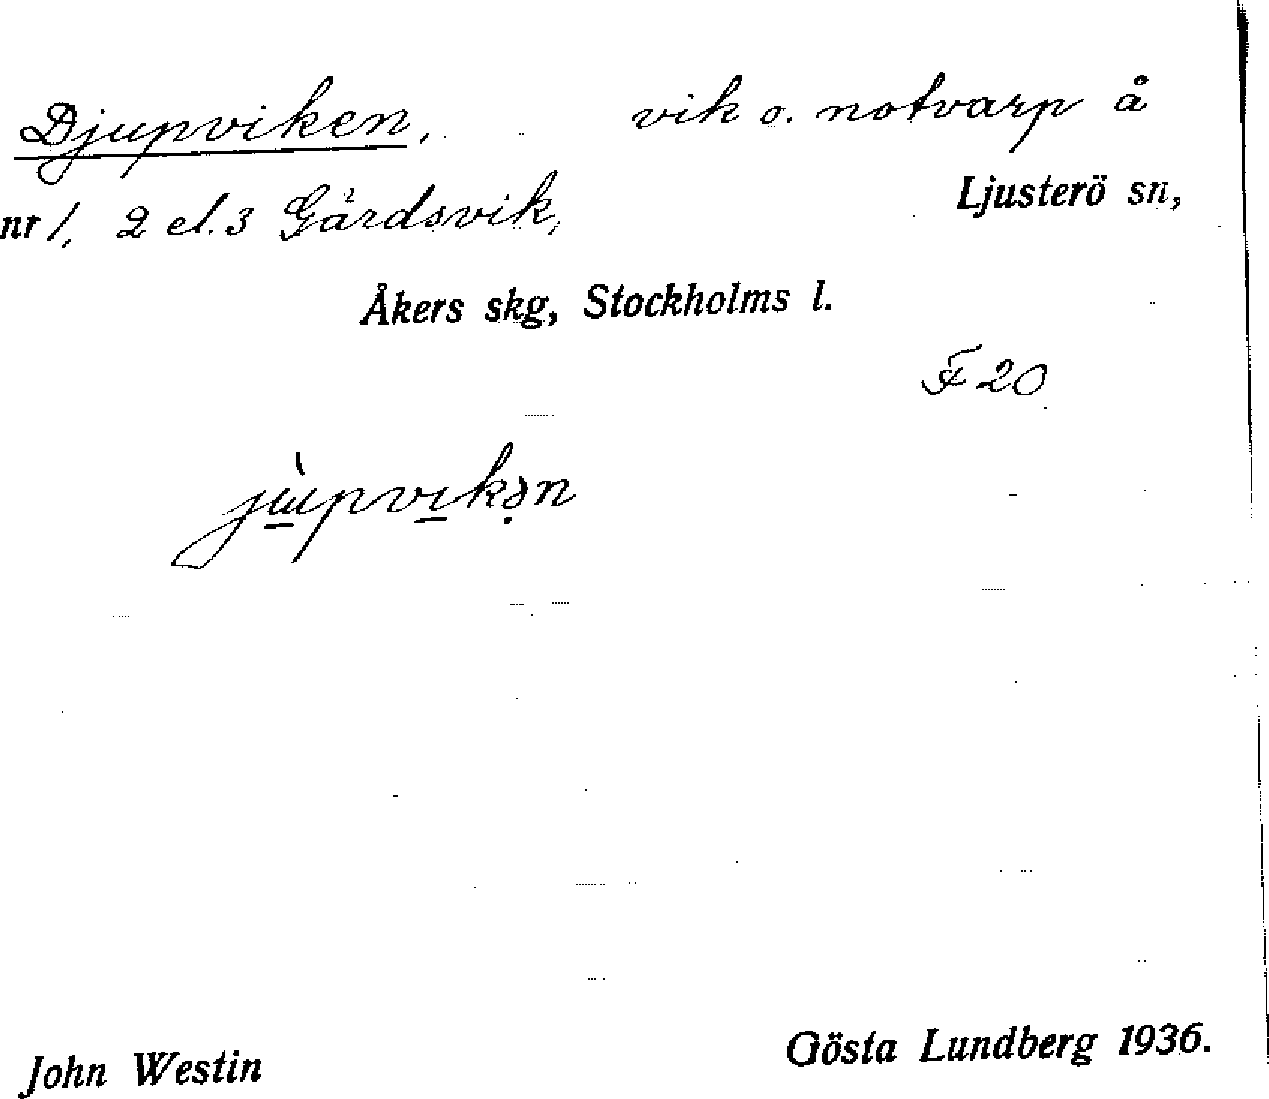 Djupviken, vik o. notvarp å
nr 1, 2 el. 3 Gärdsvik, Ljusterö sn,
Åkers skg, Stockholms l.
F 20
John Westin Gösta Lundberg 1936.